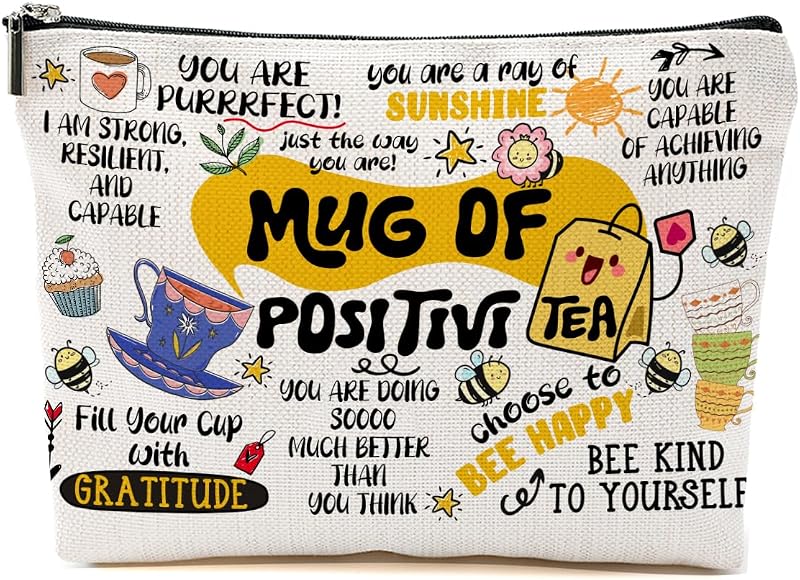 YOU ARE
PURRRFECT!
you are a ray of
SUNSHINE
YOU ARE
CAPABLE
OF ACHIEVING
ANYTHING
I AM STRONG,
RESILIENT,
AND
CAPABLE
just the way
you are!
MUG OF
POSITIVI TEA
Fill Your Cup
with
GRATITUDE
YOU ARE DOING
SOOOO
MUCH BETTER
THAN
YOU THINK
choose to
BEE HAPPY
BEE KIND
TO YOURSELF